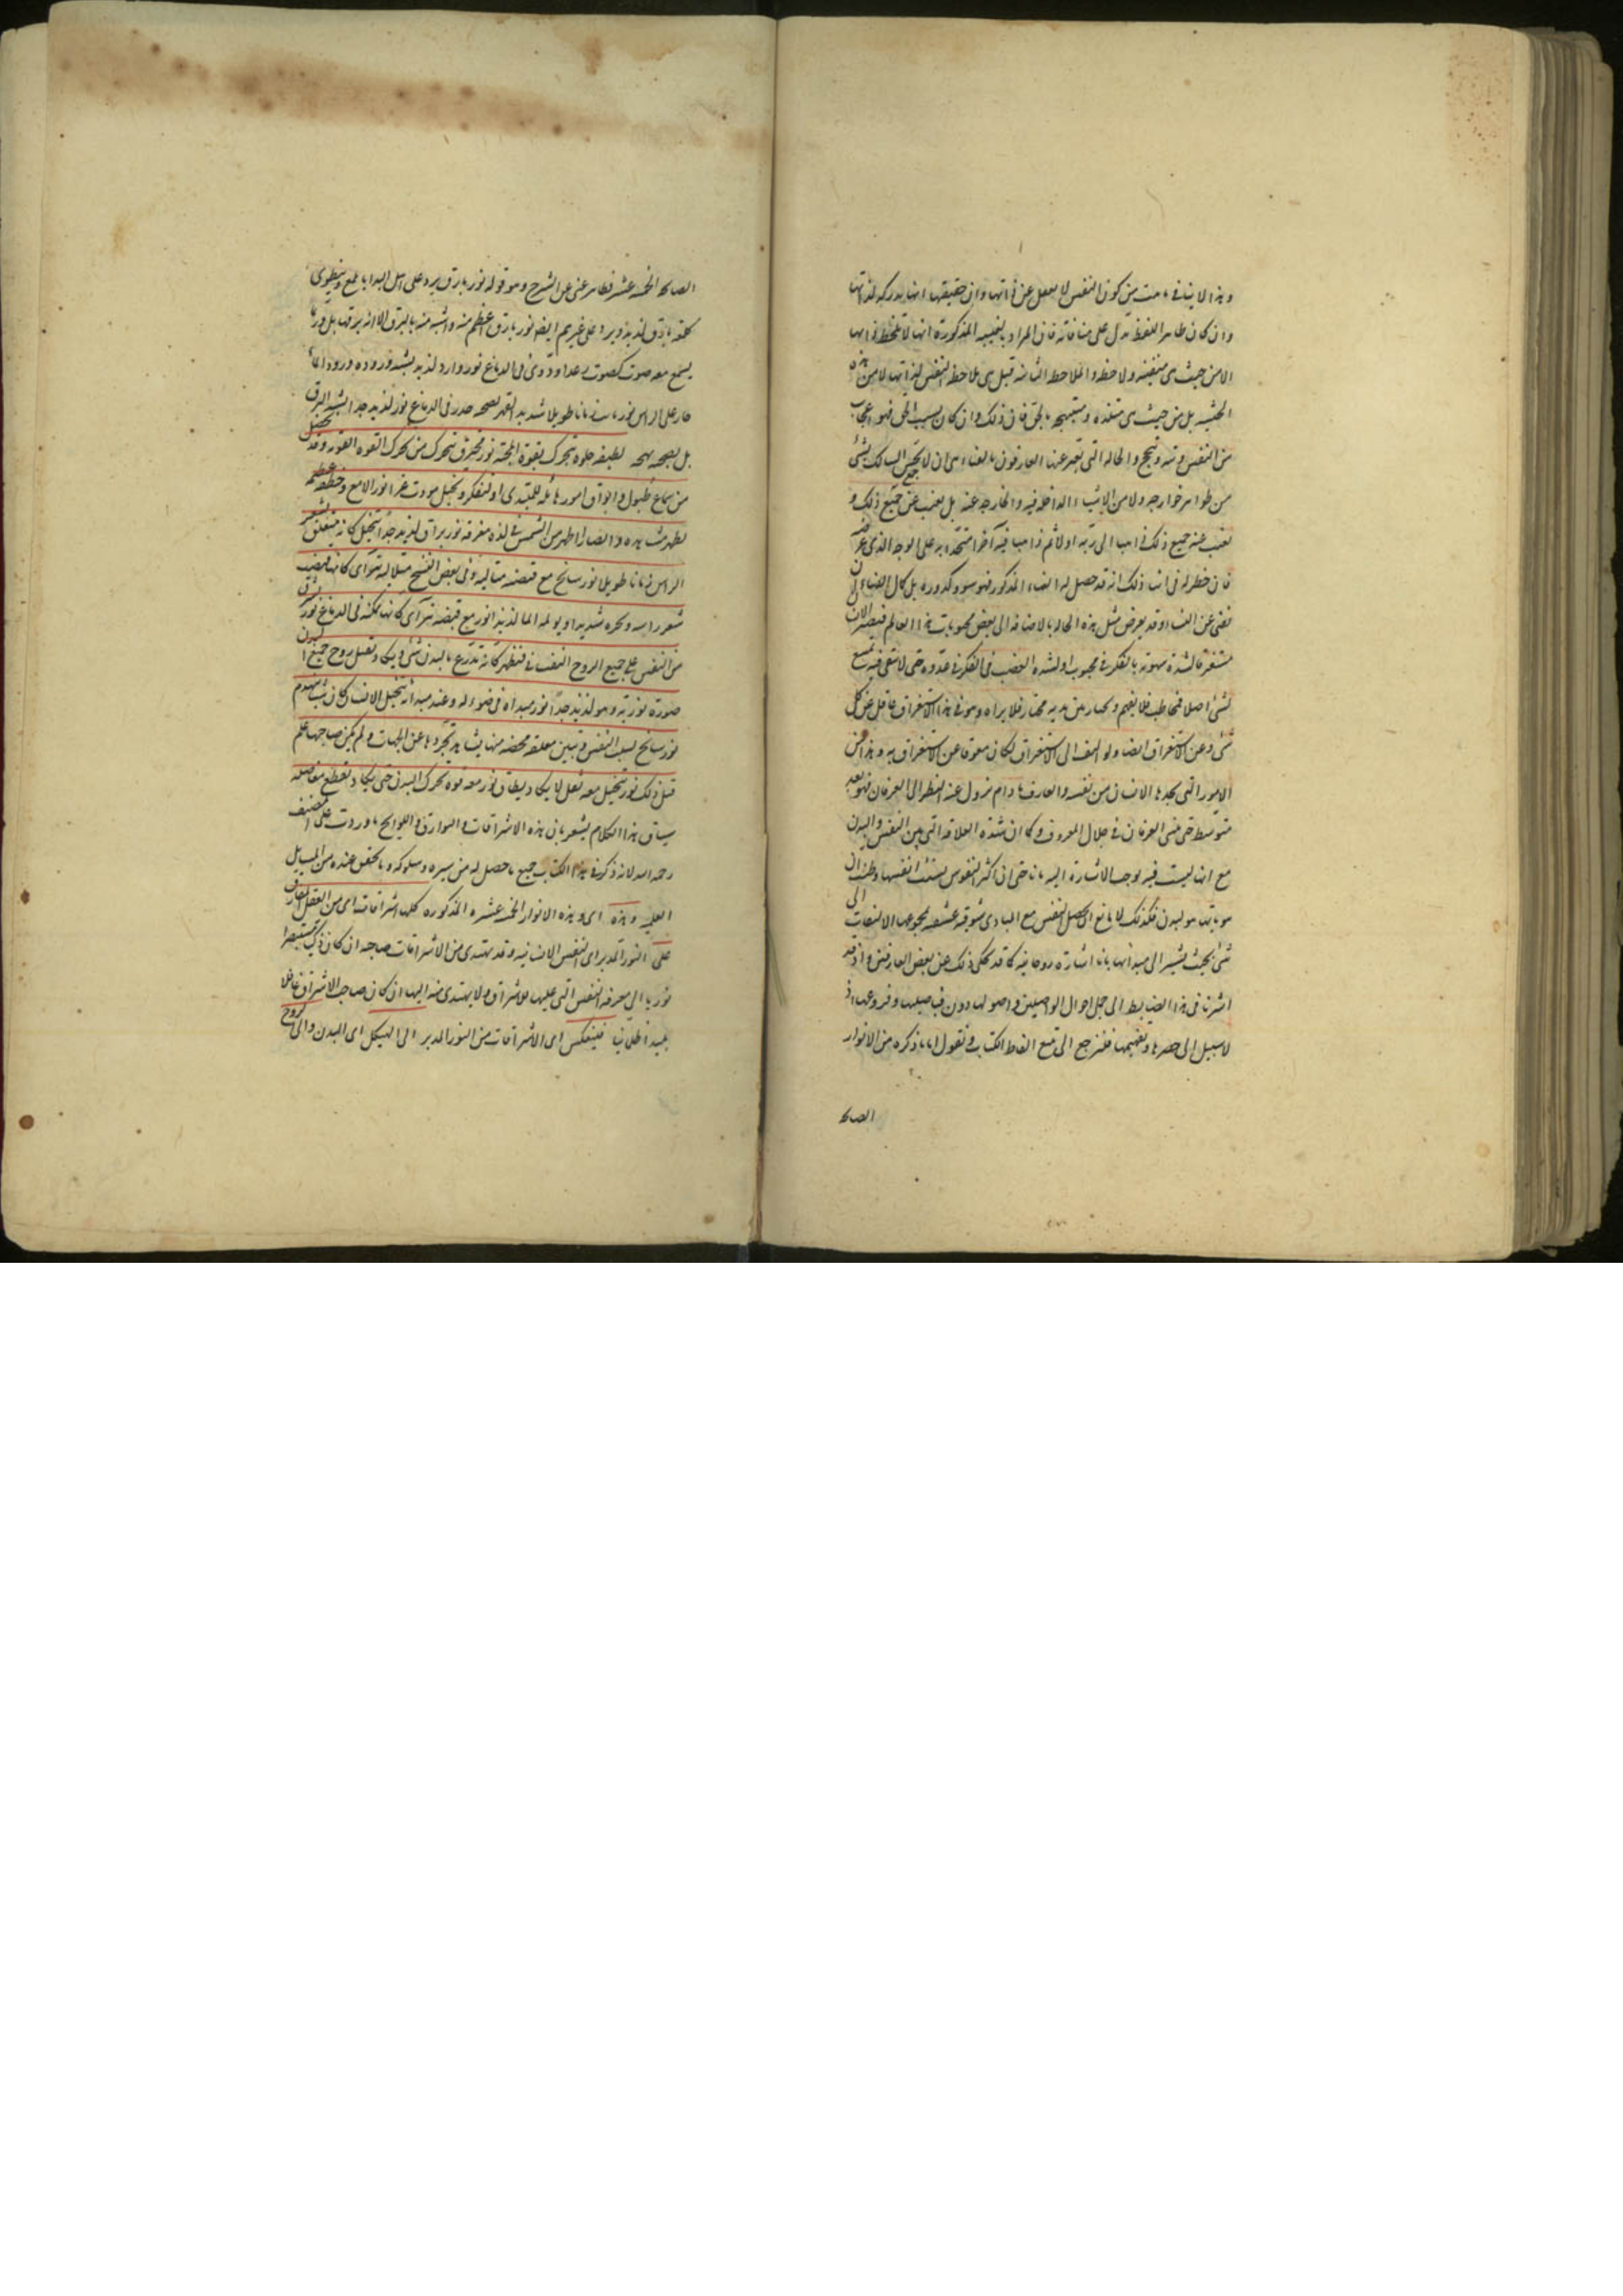 وهذا لا ينافي ما مت من كون النفس لا تغفل عن ذاتها وان حقيقتها انها مدركه لذاتها
وان كان ظاهر اللفظ يدل على منافاته فان المراد بالغيبه المذكورة انها لا تلحظ ذاتها
الا من حيث هى متنفسه ولاحظه والملاحظه الثابته قبل هى ملاحظه النفس لذاتها لا من هذه
الحيثيه بل من حيث هى متلذذه ومبتهجه بالحق فان ذلك وان كان بسبب الحق فهو اعجاب
من النفس وتيه وتبجح والحاله التى تعبر عنها العارفون بالفناء هى ان لا يحس السالك بشئ
من ظواهر جوارحه ولا من الاشياء الداخله فيه والخارجه عنه بل يغيب عن جميع ذلك و
تغيب عنه جميع ذلك ذاهبا الى ربه اولا ثم ذاهبا فيه آخرا متحدا به على الوجه الذى عرفته
فان خطر له فى اثناء ذلك انه قد حصل له الفناء المذكور فهو شوب وكدوره بل كمال الفناء ان
تفنى عن الفناء وقد يعرض مثل هذه الحاله بالاضافه الى بعض محبوبات هذا العالم فيصير الانسان
مستغرقا لشدة شهوته بالفكر فى محبوب او لشدة الغضب فى الفكر فى عدوه حتى لا يبقى فيه متسع
لشئ اصلا فيخاطب فلا يفهم ويجتاز بين يديه مجتاز فلا يراه وهو فى هذا الاستغراق غافل عن كل
شئ وعن الاستغراق ايضا ولو التفت الى الاستغراق لكان معوقا عن الاستغراق به وهذا من
الامور التى يجدها الانسان من نفسه والعارف ما دام يزول عنه النظر الى العرفان فهو بعد
متوسط حتى يفنى العرفان فى جلال المعروف وكما ان شدة العلاقة التى بين النفس والبدن
مع انها ليست فيه توجب الاشارة اليه بانا حتى ان اكثر النفوس نسيت انفسها وظنت ان
هويتها هو البدن فكذلك لا مانع ان يحصل للنفس مع المبادى شوقيه عشقيه تمحو عنها الالتفات الى
شئ بحيث تشير الى مبدأها بانا اشارة روحانيه كما قد حكى ذلك عن بعض العارفين واذ قد
اشرنا فى هذا الضابط الى جمل احوال الواصلين واصولها دون تفاصيلها وفروعها اذ
لا سبيل الى حصرها وتفهيمها فلنرجع الى تتبع الفاظ الكتاب ونقول اما ما ذكره من الانوار
الصا
الصا الخمسه عشر فظاهر غنى عن الشرح وهو قوله نور بارق يرد على اهل البدايا يلمع وينطوى
كلمعه بارق لذيذ ويرد على غيرهم ايضا نور بارق اعظم منه واشبه منه بالبرق الا انه برق هايل وربما
يسمع معه صوت كصوت رعد او دوى فى الدماغ نور وارد لذيذ يشبه وروده ورود ماء
حار على الراس نور ثابت زمانا طويلا شديد القهر يصحبه خدر فى الدماغ نور لذيذ جدا لا يشبه البرق
بل يصحبه بهجه لطيفه حلوه تتحرك بقوة المحبه نور محرق يتحرك من تحرك القوه العزيه وقد يحصل
من سماع طبول وابواق امور هائله للمبتدى او لتفكر وتخيل يورث عزا نور لامع فى خطفه عظيمه
يظهر مشاهده وابصارا اظهر من الشمس فى لذة مغرقه نور براق لذيذ جدا يتخيل كانه متعلق بشعر
الراس زمانا طويلا نور سانح مع قبضه مثاليه وفى بعض النسخ متلاليه تتراى كانها قبضت
شعر راسه وتجره شديدا ويولمه الما لذيذا نور مع قبضه تتراى كانها متمكنه فى الدماغ نور يشرق
من النفس على جميع الروح النفسانى فيظهر كانه تدرع بالبدن شئ ويكاد يقبل روح جميع البدن
صورة نوريه وهو لذيذ جدا نور مبداه فى صوله وعند مبدائه يتخيل الانسان كان شيئا ينهدم
نور سانح يسلب النفس وتتبين معلقه محضه منها يشاهد تجردها عن الجهات وان لم يكن صاحبها علم
قبل ذلك نور يتخيل معه ثقل لا يكاد يطاق نور معه قوه تحرك البدن حتى يكاد يقطع مفاصله
سياق هذا الكلام يشعر بان هذه الاشراقات والبوارق واللوايح ما وردت على المصنف
رحمه الله لانه ذكر فى هذا الكتاب جميع ما حصل له من سيره وسلوكه وما تحقق عنده من المسايل
العلميه وهذه اى وهذه الانوار الخمسه عشره المذكوره كلها اشراقات اى من العقل المفارق
على النور المدبر اى النفس الانسانيه وقد يهتدى من الاشراقات صاحبه ان كان ذكيا مستبصرا
نوريا الى معرفه النفس التى عليها الاشراق ولا يهتدى منه اليها ان كان صاحب الاشراق غافلا
بليدا ظلمانيا فينعكس اى الاشراقات من النور المدبر الى الهيكل اى البدن والى الروح